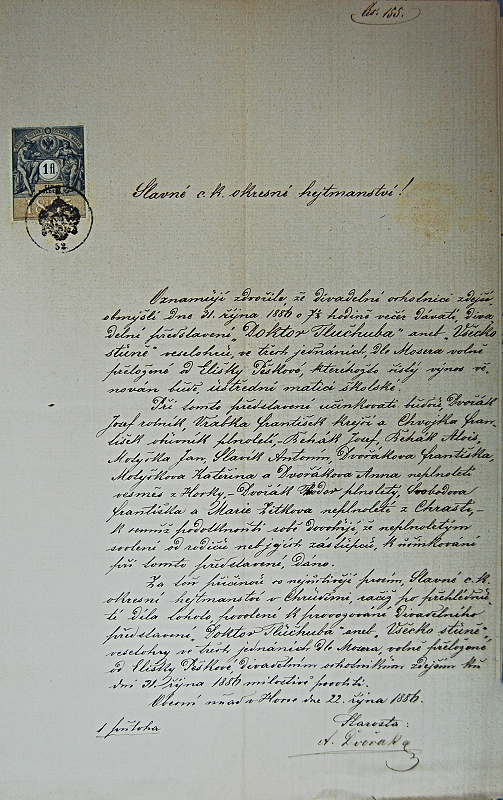 Čís. 155.
1 fl
52
Slavné c. k. okresné hejtmanství!
Oznamují zdvořile, že divadelní ochotníci zdejší
obmýšlí dne 31. října 1886 o 7½ hodině večer dávati, diva-
delné představení „Doktor Tlučhuba" aneb „Všecko
stůně" veselohru, ve třech jednáních, dle Mosera volně
přeložené od Elišky Peškové, kteréhožto čistý výnos vě-
nován bude, ústřední matici školské.
Při tomto představení účinkovati budou, Dvořák
Josef rolník, Vrabka František krejčí a Chvojka Fran-
tišek obuvník plnoletí, Řehák Josef, Řehák Alois,
Motyčka Jan, Slavík Antonín, Dvořákova Františka,
Motyčkova Kateřina a Dvořákova Anna neplnoletí
vesměs z Horky, – Dvořák plnoletý, Svobodova
Františka a Marie Zítkova neplnoleté z Chrasti, –
k čemuž podotknouti sobě dovoluji, že neplnoletým
svolení od rodičů neb jejich zástupců, k účinkování
při tomto představení, dáno.
Za tou příčinou co nejuctivěji prosím, Slavné c. k.
okresní hejtmanství v Chrudimi, račiž po přehlédnutí
té díla tohoto, povolení k provozování divadelního
představení „Doktor Tlučhuba" aneb „Všecko stůně",
veselohry ve třech jednáních dle Mosera, volně přeložené
od Elišky Peškové divadelním ochotníkům zdejším ku
dni 31. října 1886 milostivě povoliti.
Obecní úřad v Horce dne 22. října 1886.
1 příloha
Starosta:
A. Dvořák